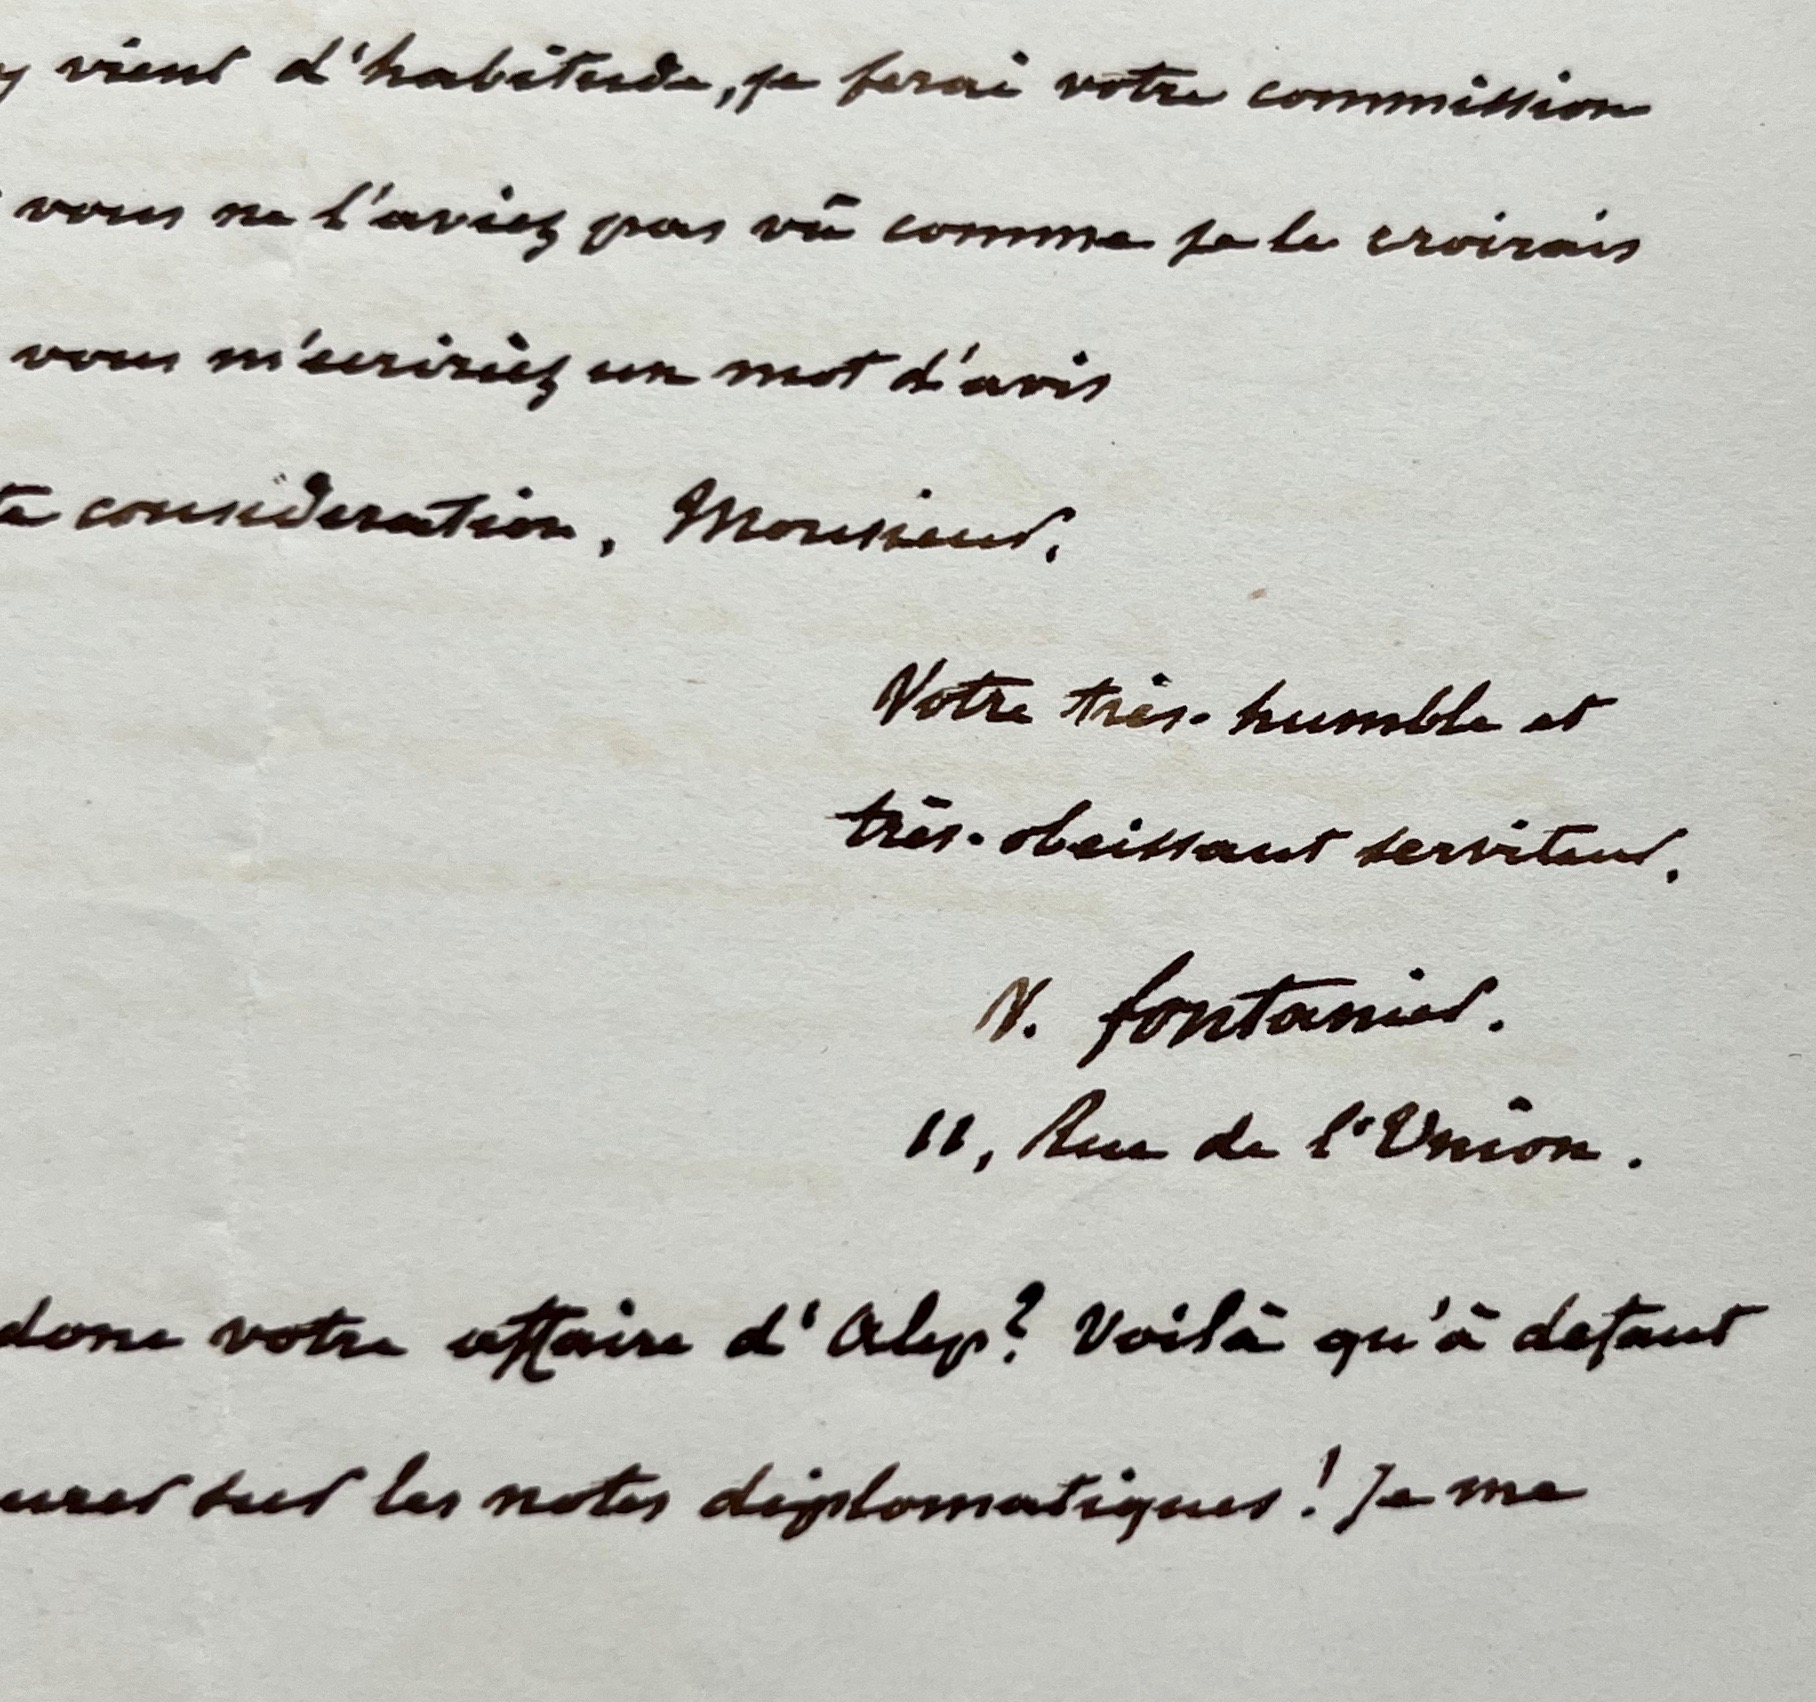 y vient d'habitude, je ferai votre commission
vous ne l'aviez pas vû comme je le croirais
vous m'ecririez un mot d'avis
consideration, Monsieur,
Votre très-humble et
très-obeissant serviteur,
V. fontanier.
11, Rue de l'Union.
donc votre affaire d'Alep? Voilà qu'à defaut
sur les notes diplomatiques! Je me